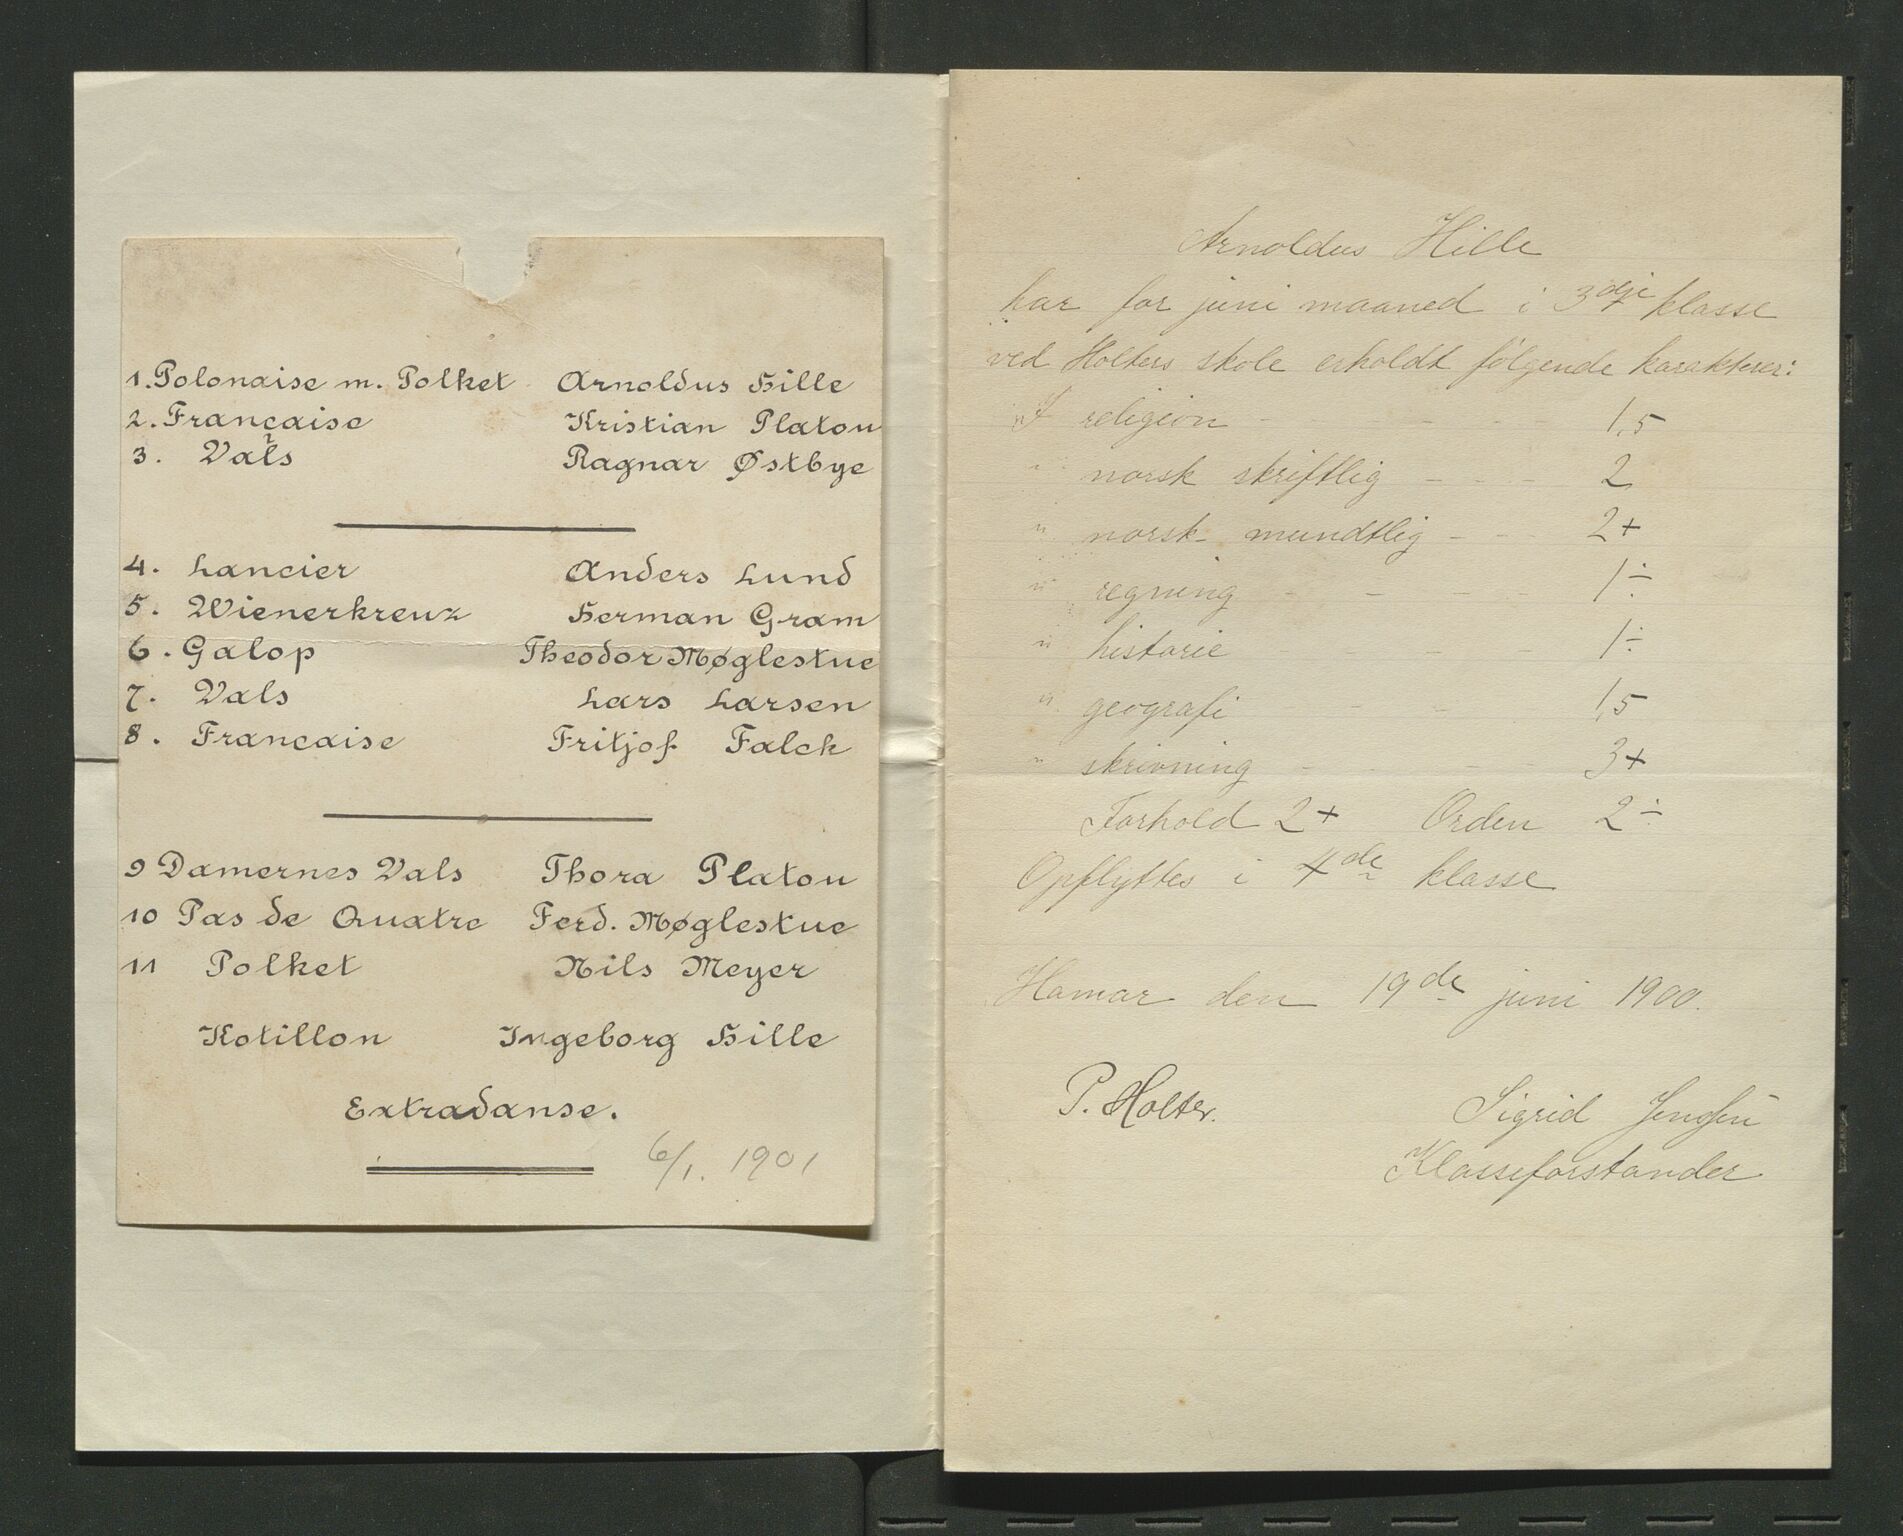 1. Polonaise m. Polket Arnoldus Hille
2. Française Kristian Platou
3. Vals Ragnar Østbye
4. Lancier Anders Lund
5. Wienerkreuz Herman Gram
6. Galop Theodor Møglestue
7. Vals Lars Larsen
8. Francaise Fritjof Falck
9 Damernes Vals Thora Platou
10 Pas de Quatre Ferd. Møglestue
11 Polket Nils Meyer
Kotillon Ingeborg Hille
Extradanse.
6/1. 1901
Arnoldus Hille
har for juni maaned i 3dje klasse
ved Holters skole erholdt følgende karakterer:
I religion - - - - 1,5
" norsk skriftlig - - - 2
" norsk mundtlig - - - 2+
" regning - - - - 1÷
" historie - - - - 1÷
" geografi - - - 1,5
" skrivning - - - - 3+
Forhold 2+ Orden 2÷
Opflyttes i 4de klasse
Hamar den 19de juni 1900.
P. Holter. Sigrid Jenssen
Klasseforstander